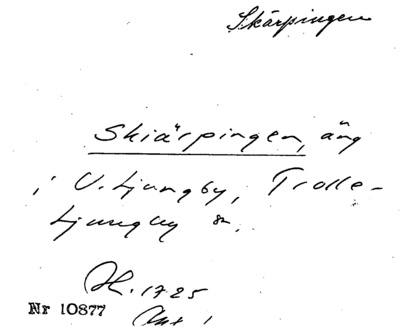 Skärpingen
Skiärpingen, äng
i V. Ljungby, Trolle-
Ljungby sn.
H. 1725
Nr 10877